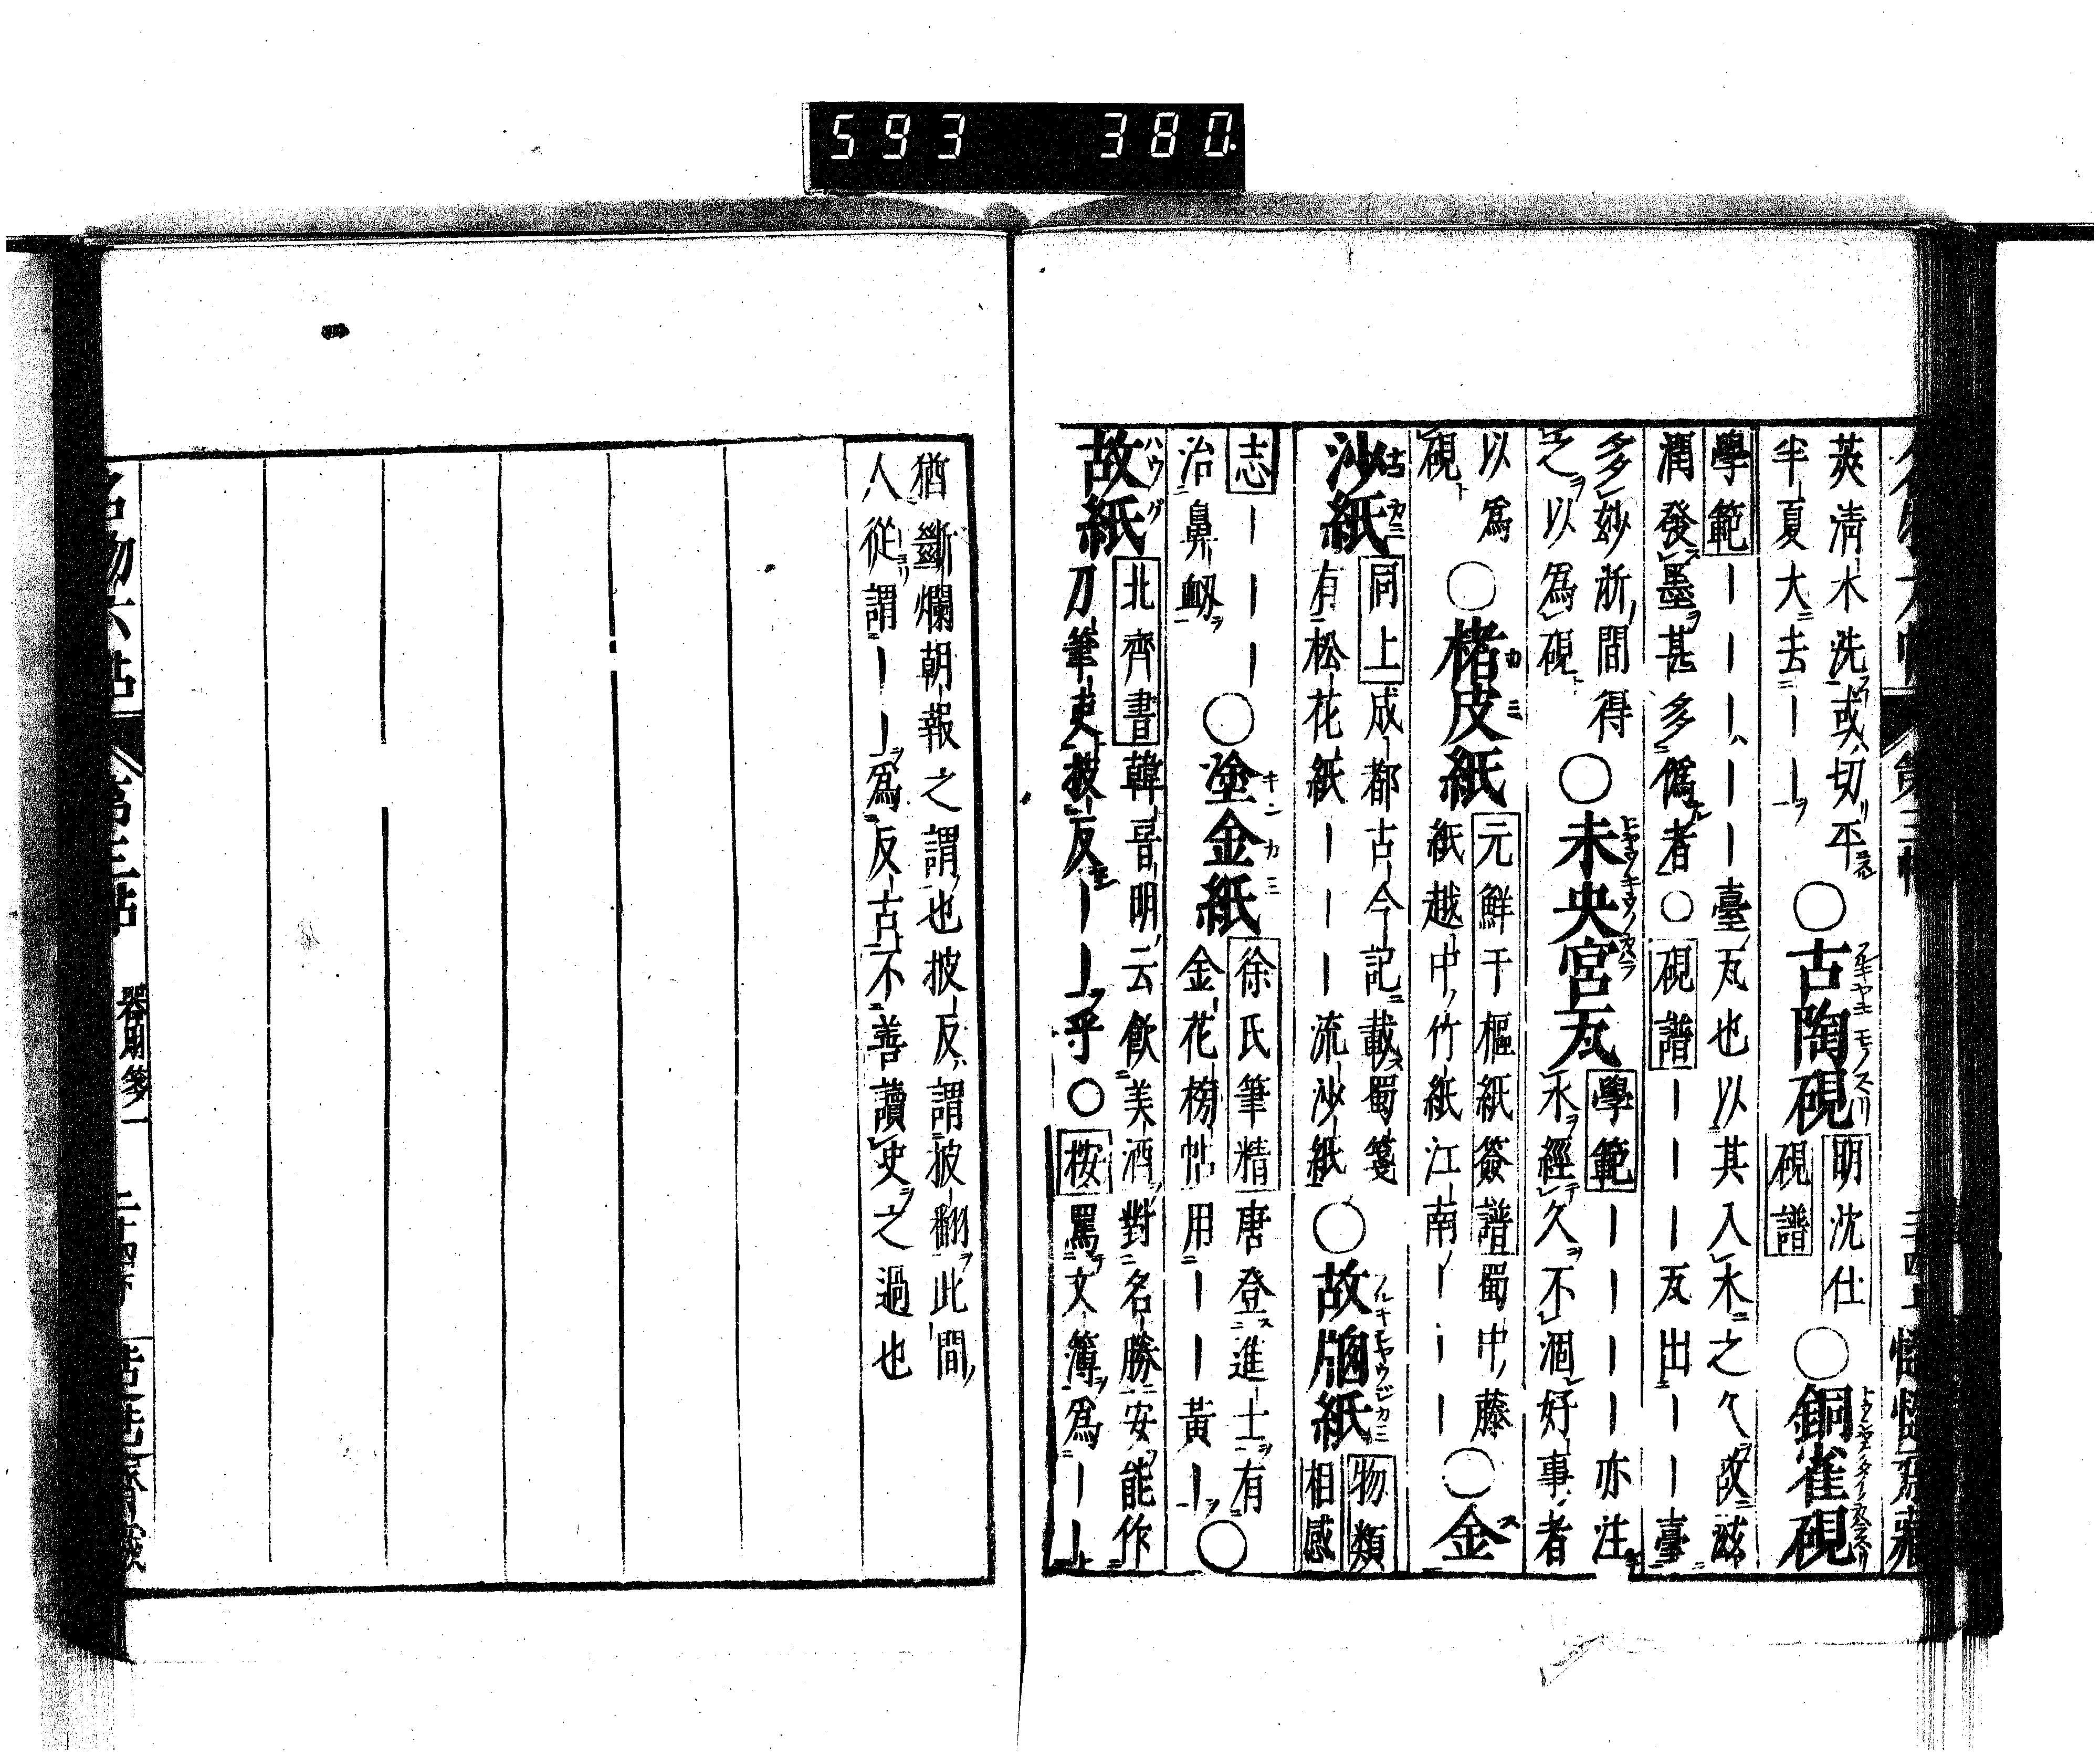 593 380
莢清水洗或切平
半夏大去｜｜
○古陶硯
明沈仕
硯譜
○銅雀硯
學範｜｜｜｜｜臺瓦也以其入水之久故滋
潤發墨甚多僞者○硯譜｜｜｜瓦出｜｜臺
多妙浙間得
之以爲硯
○未央宮瓦
學範｜｜｜｜亦注
水經久不涸好事者
以爲
硯
○楮皮紙
元鮮于樞紙箋譜蜀中藤
紙越中竹紙江南｜｜｜
○金
沙紙
同上成都古今記載蜀箋
有松花紙｜｜｜流沙紙
○故牕紙
物類
相感
志｜｜｜
治鼻衂
○塗金紙
徐氏筆精唐登進士有
金花榜帖用｜｜黃｜
○
故紙
北齊書韓晉明云飲美酒對名勝安能作
刀筆吏披反｜｜乎○按罵文簿爲｜｜
猶斷爛朝報之謂也披反謂披翻此間
人從謂｜｜爲反古不善讀史之過也
名物六帖 第三帖 器財箋一